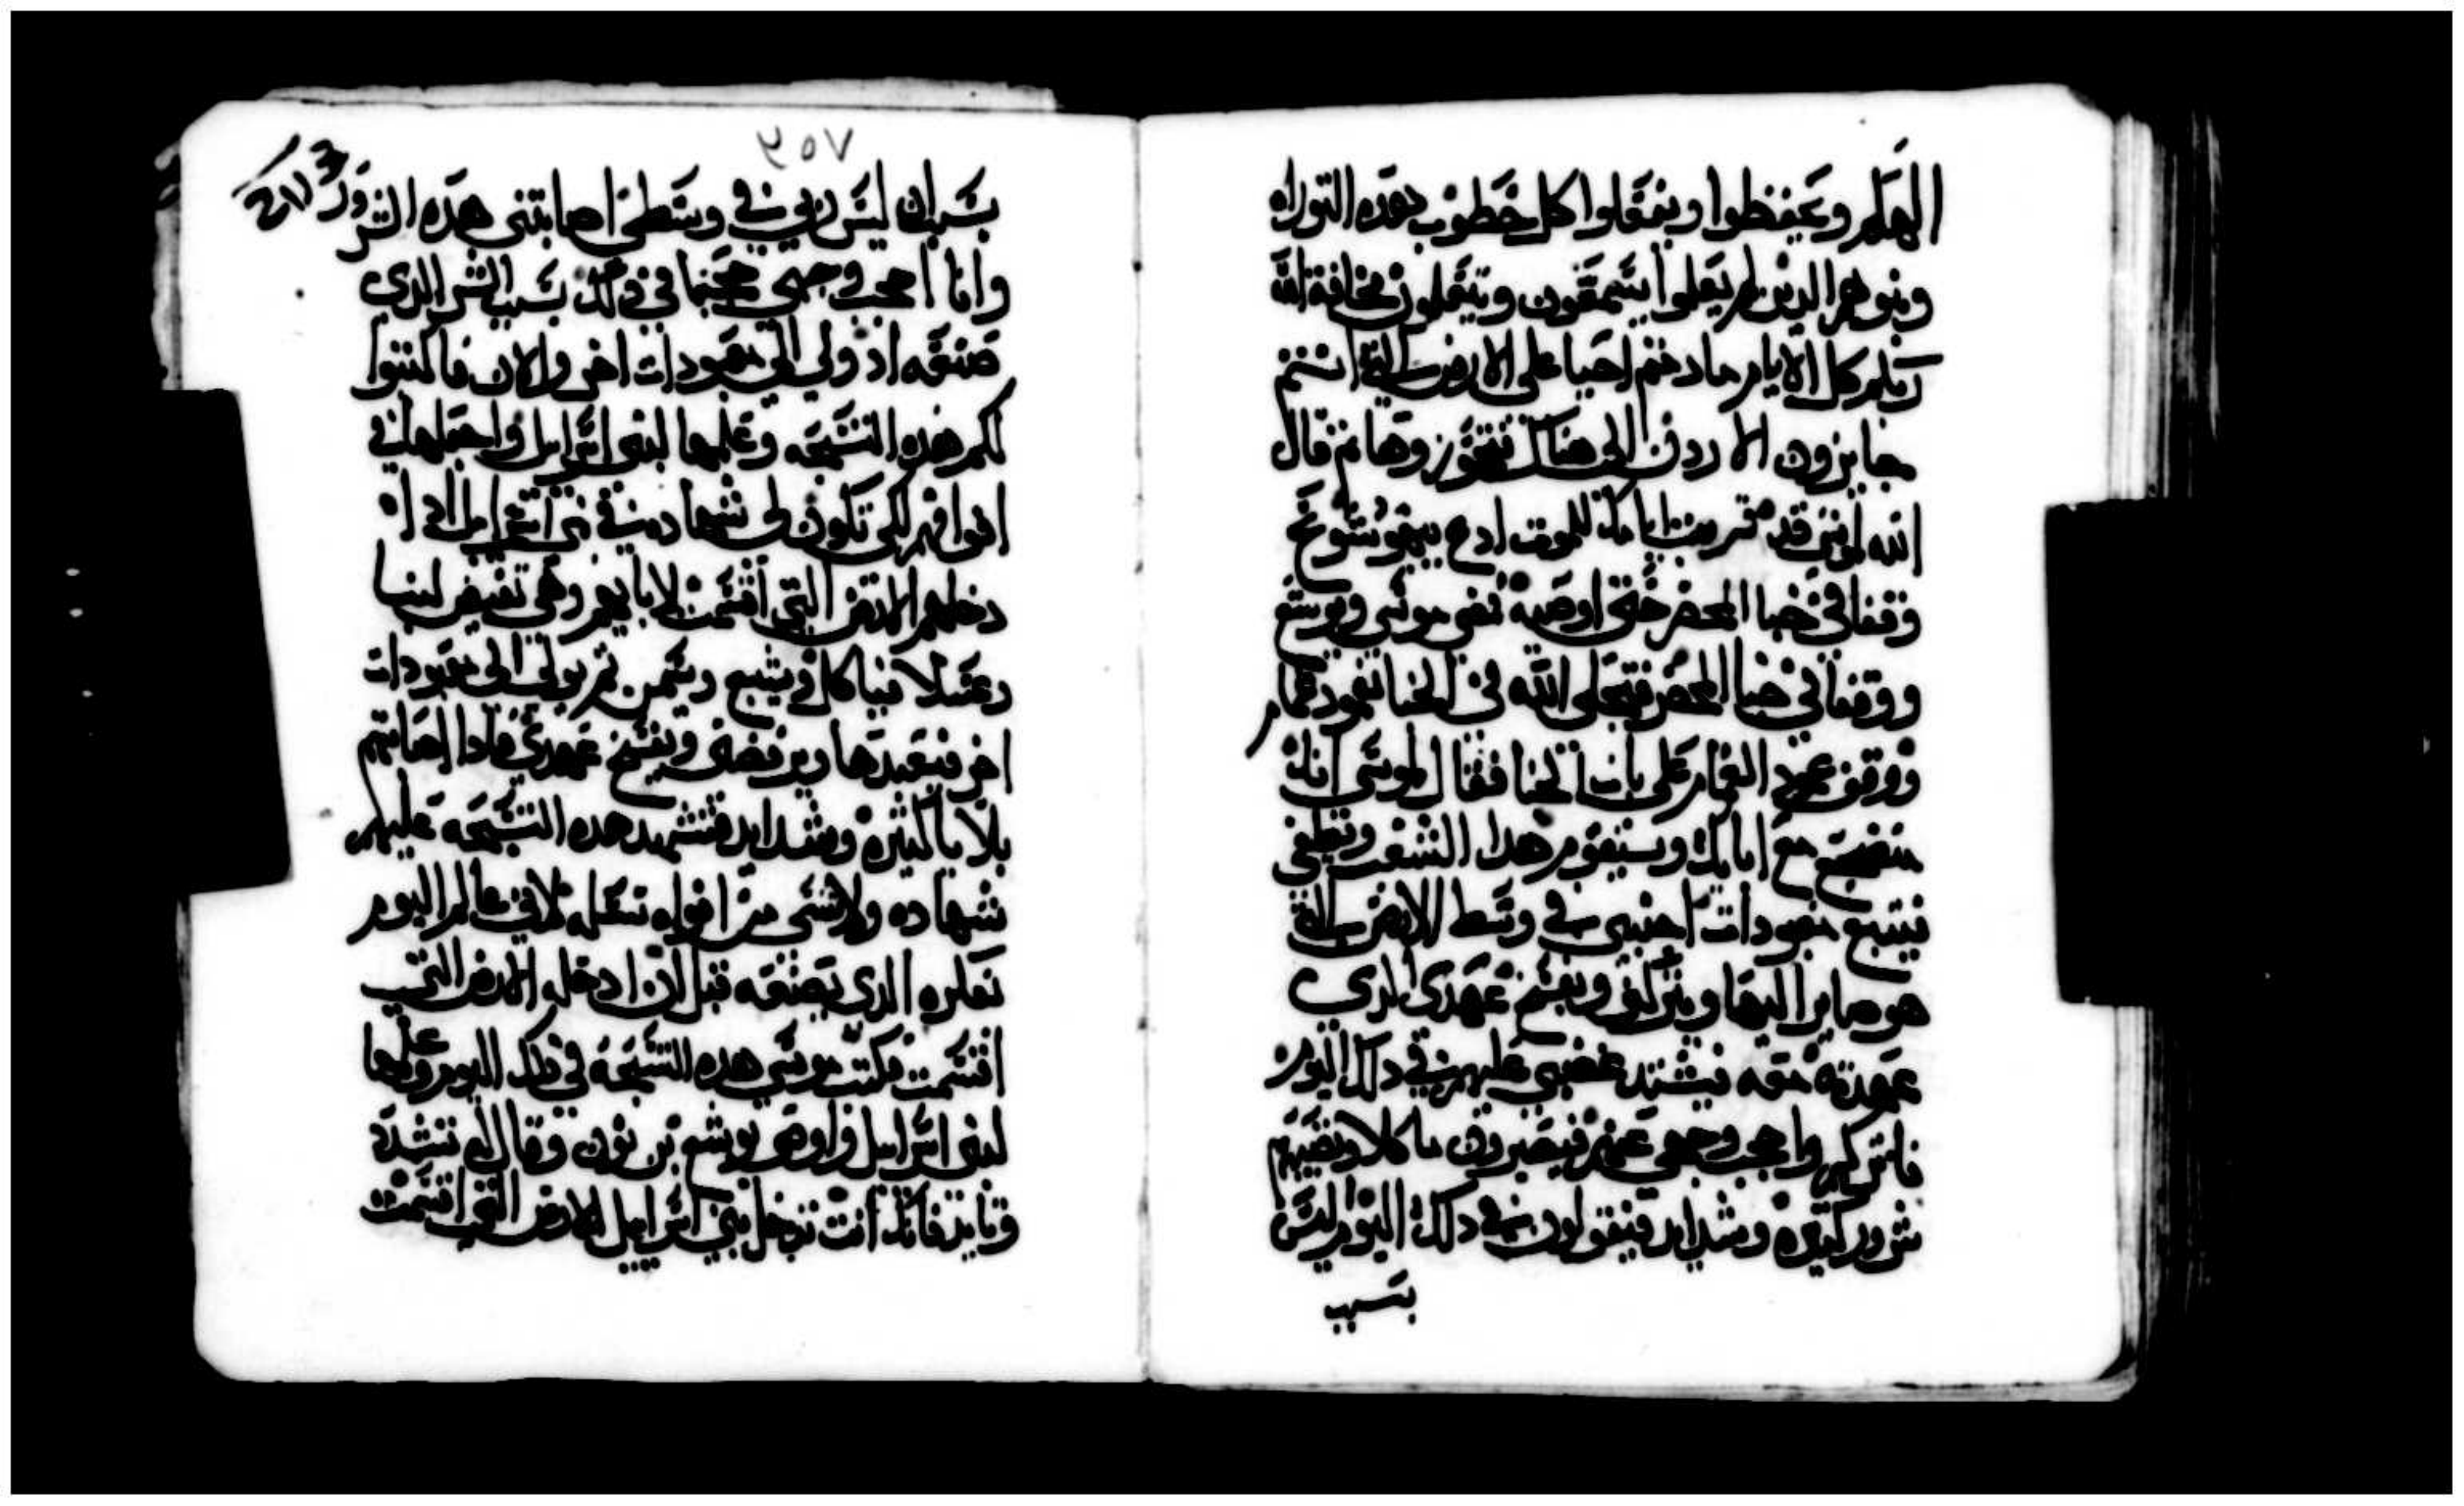 الهكم وتحفظوا وتعملوا كل خطوب هذه التوراه
وبنوهم الدين لم يعلموا يسمعون ويتعلمون مخافة الله
ربكم كل الايام ما دمتم احيا على الارض التي انتم
جايزون الاردن الى هناك لتحوزوها ثم قال
الله لموسى قد قربت ايامك للموت ادع بيهوشوع
وقفا في خبا المحضر حتى اوصيه فمضى موسى ويوشع
ووقفا في خبا المحضر فتجلى الله في الخبا بعمود غمام
ووقف عمود الغمام على باب الخبا فقال لموسى انك
منضجع مع ابايك وسيقوم هذا الشعب ويطغى
فيتبع معبودات اجنبي في وسط الارض التي
هو صاير اليها ويتركني ويفسخ عهدي الذي
عهدته معه فيشتد غضبي عليهم في ذلك اليوم
فاتركهم واحجب وجهي عنهم فيصيرون ماكلا وتصيبهم
شرور كثيرة وشدايد فيقولون في ذلك اليوم ليس
بسبب
٢٥٧
بسبب ان ليس ربي في وسطي اصابتني هذه الشرور
وانا احجب وجهي حجبا في ذلك بسبب الشر الذي
صنعه اذ ولي الى معبودات اخر والان فاكتبوا
لكم هذه التسبحه وعلمها لبني اسرايل واجعلها في
افواههم لكي تكون لي شهادة في بني اسرايل اذا
دخلهم الارض التي اقسمت لابايهم وهي تفيض لبنا
وعسلا فياكل ويشبع ويسمن ثم يولي الى معبودات
اخر فيعبدها ويرفضني ويفسخ عهدي فاذا اصابتهم
بلايا كثيره وشدايد فتشهد هذه التسبحه عليهم
شهاده ولا تنسى من افواه نسله لاني عالم اليوم
بمكره الذي يصنعه قبل ان ادخله الارض التي
اقسمت فكتب موسى هذه التسبحه في ذلك اليوم وعلمها
لبني اسرايل واوصى يوشع بن نون وقال له تشدد
وتايد فانك انت تدخل بني اسرايل الارض التي اقسمت